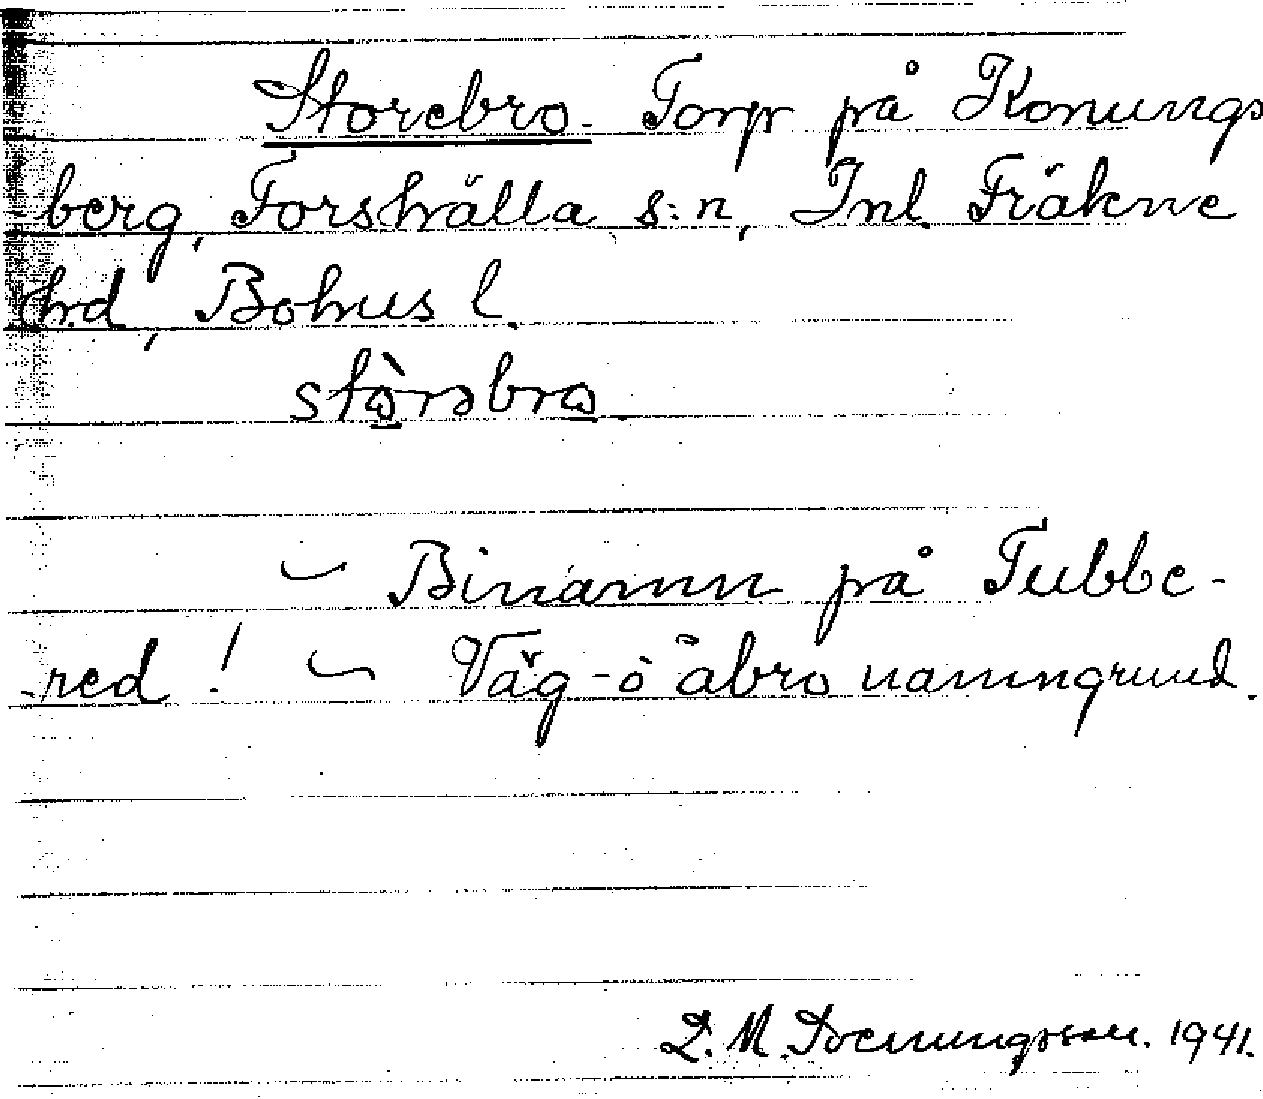 Storebro. Torp på Konungs
berg, Forshälla s:n, Inl. Fräkne
hd, Bohus l.
stòrəbro
~ Binamn på Tubbe-
red! ~ Väg- o åbro namngrund.
D. M. Svenungsson. 1941.